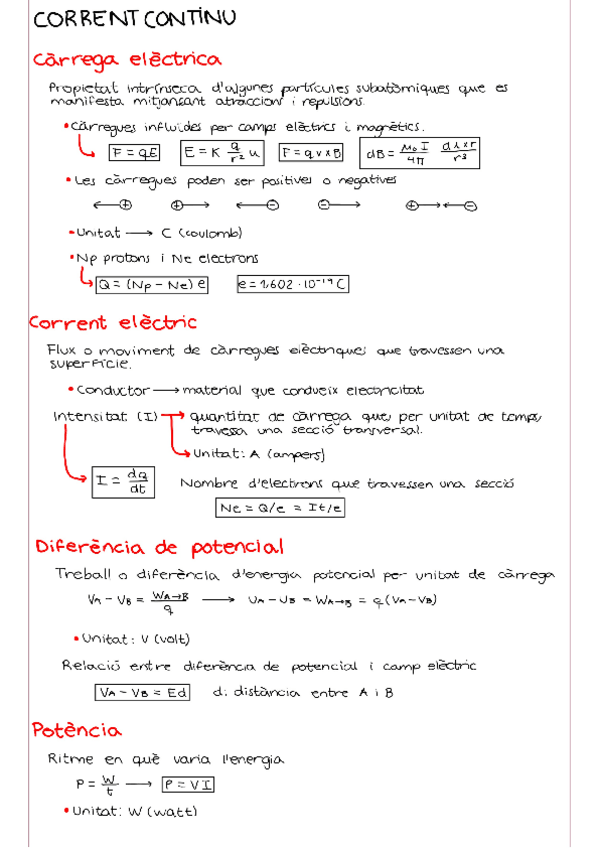 CORRENT CONTINU
Càrrega elèctrica
Propietat intrínseca d'algunes partícules subatòmiques que es
manifesta mitjansant atraccions i repulsions.
• Càrregues influïdes per camps elèctrics i magnètics.
F = QE  E = K q/r² u  F = q v x B  dB = μ₀ I/4π dl x r/r³
• Les càrregues poden ser positives o negatives
← ⊕  ⊕ →  ← ⊖  ⊖ →  ⊕ → ← ⊖
• Unitat → C (coulomb)
• Np protons i Ne electrons
Q = (Np - Ne) e  e = 1,602 · 10⁻¹⁹ C
Corrent elèctric
Flux o moviment de càrregues elèctriques que travessen una
superfície.
• Conductor → material que condueix electricitat
Intensitat (I) → quantitat de càrrega que, per unitat de temps,
travessa una secció transversal.
Unitat: A (ampers)
I = dQ/dt  Nombre d'electrons que travessen una secció
Ne = Q/e = It/e
Diferència de potencial
Treball o diferència d'energia potencial per unitat de càrrega
VA - VB = WA→B/q → UA - UB = WA→B = q (VA - VB)
• Unitat: V (volt)
Relació entre diferència de potencial i camp elèctric
VA - VB = Ed  d: distància entre A i B
Potència
Ritme en què varia l'energia
P = W/t → P = VI
• Unitat: W (watt)